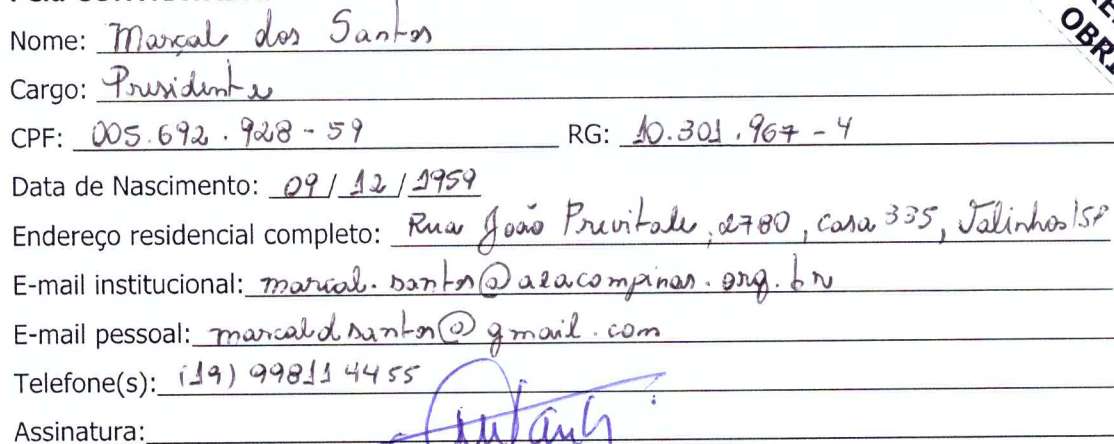 Nome: Marçal dos Santos
Cargo: Presidente
CPF: 005.692.928-59 RG: 10.301.967-4
Data de Nascimento: 09/12/1959
Endereço residencial completo: Rua João Previtale, 2780, casa 335, Valinhos/SP
E-mail institucional: marcal.santos@aeacampinas.org.br
E-mail pessoal: marcaldsantos@gmail.com
Telefone(s): (19) 99811 4455
Assinatura: